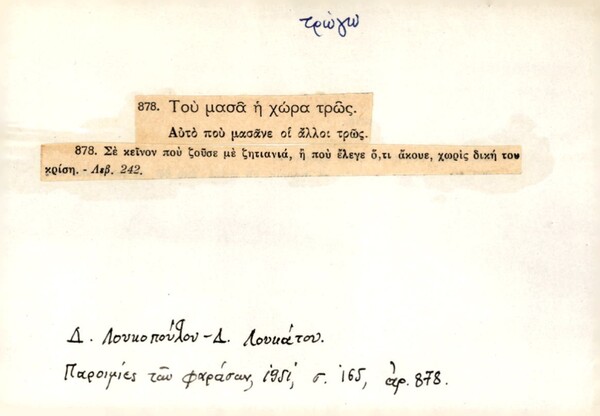 τρώγω
878. Τοῦ μασᾶ ἡ χώρα τρῶς.
Αὐτὸ ποὺ μασᾶνε οἱ ἄλλοι τρῶς.
878. Σὲ κεῖνον ποὺ ζοῦσε μὲ ζητιανιά, ἢ ποὺ ἔλεγε ὅ,τι ἄκουε, χωρὶς δική του
κρίση. - Λεβ. 242.
Δ. Λουκοπούλου - Δ. Λουκάτου.
Παροιμίες τῶν Φαράσων, 1951, σ. 165, ἀρ. 878.